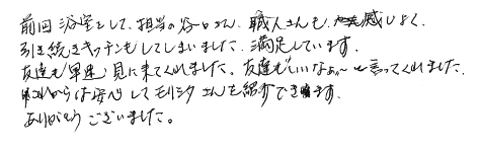 前回浴室をして、担当の谷口さん、職人さんも、感じよく、
引き続きキッチンもしてしまいました。満足しています。
友達も早速、見に来てくれました。友達も「いいなぁ〜」と言ってくれました。
これからは安心してモリシタさんを紹介できます。
ありがとうございました。